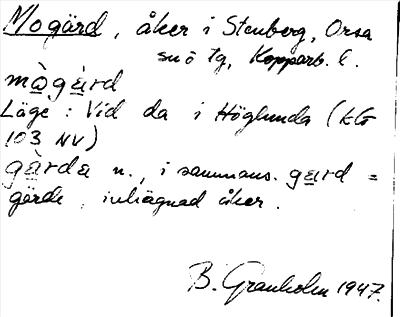 Mogärd, åker i Stenberg, Orsa
sn ö tg, Kopparb. l.
mògàrd
Läge: Vid da i Höglunda (kG
103 NV)
gàrda n., i sammans. gard =
gärde, inhägnad åker.
B. Granholm 1947.